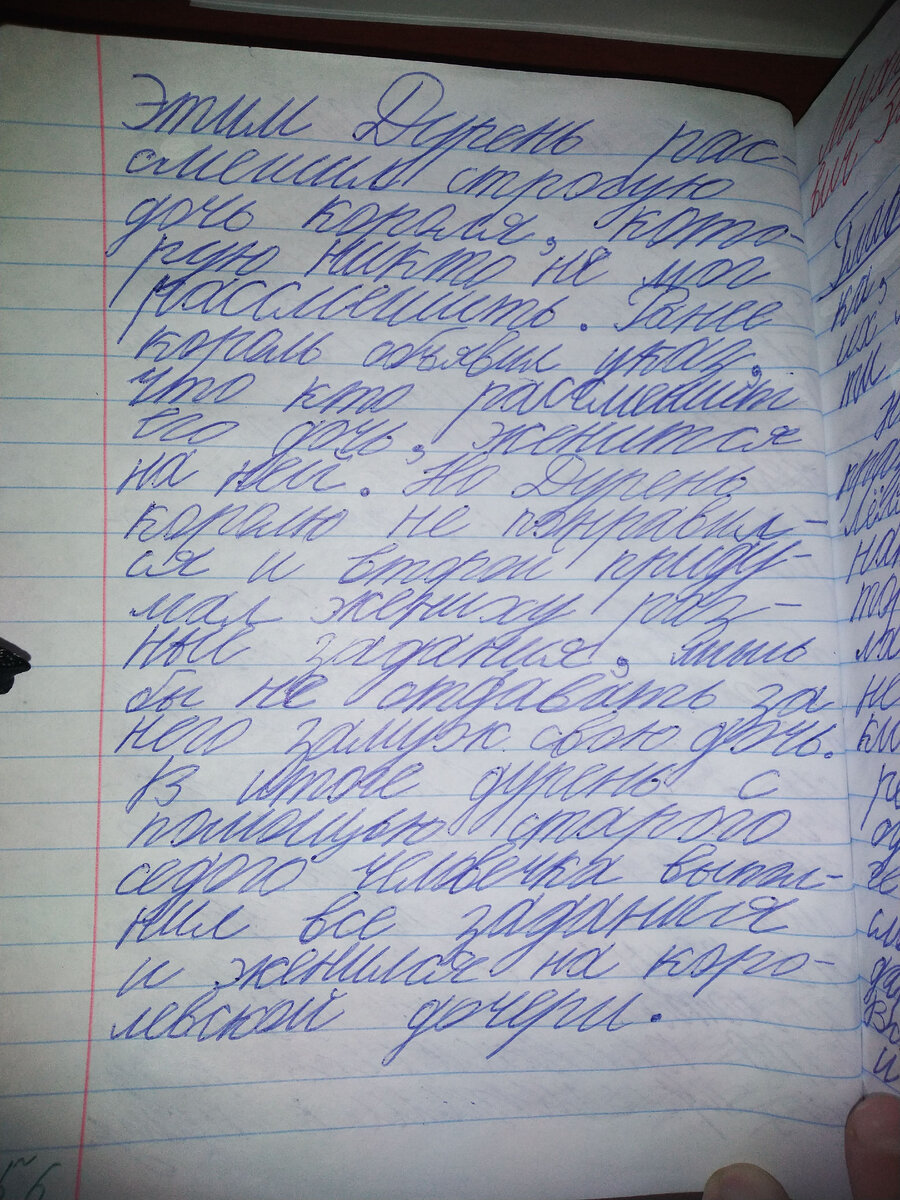 Этим Дурень рас-
смешил строгую
дочь короля, кото-
рую никто не мог
рассмешить. Ранее
король объявил указ,
что кто рассмешит
его дочь, женится
на ней. Но Дурень
королю не понравил-
ся и второй приду-
мал жениху раз-
ные задания, лишь
бы не отдавать за
него замуж свою дочь.
В итоге дурень с
помощью старого
седого человечка выпол-
нил все задания
и женился на коро-
левской дочери.